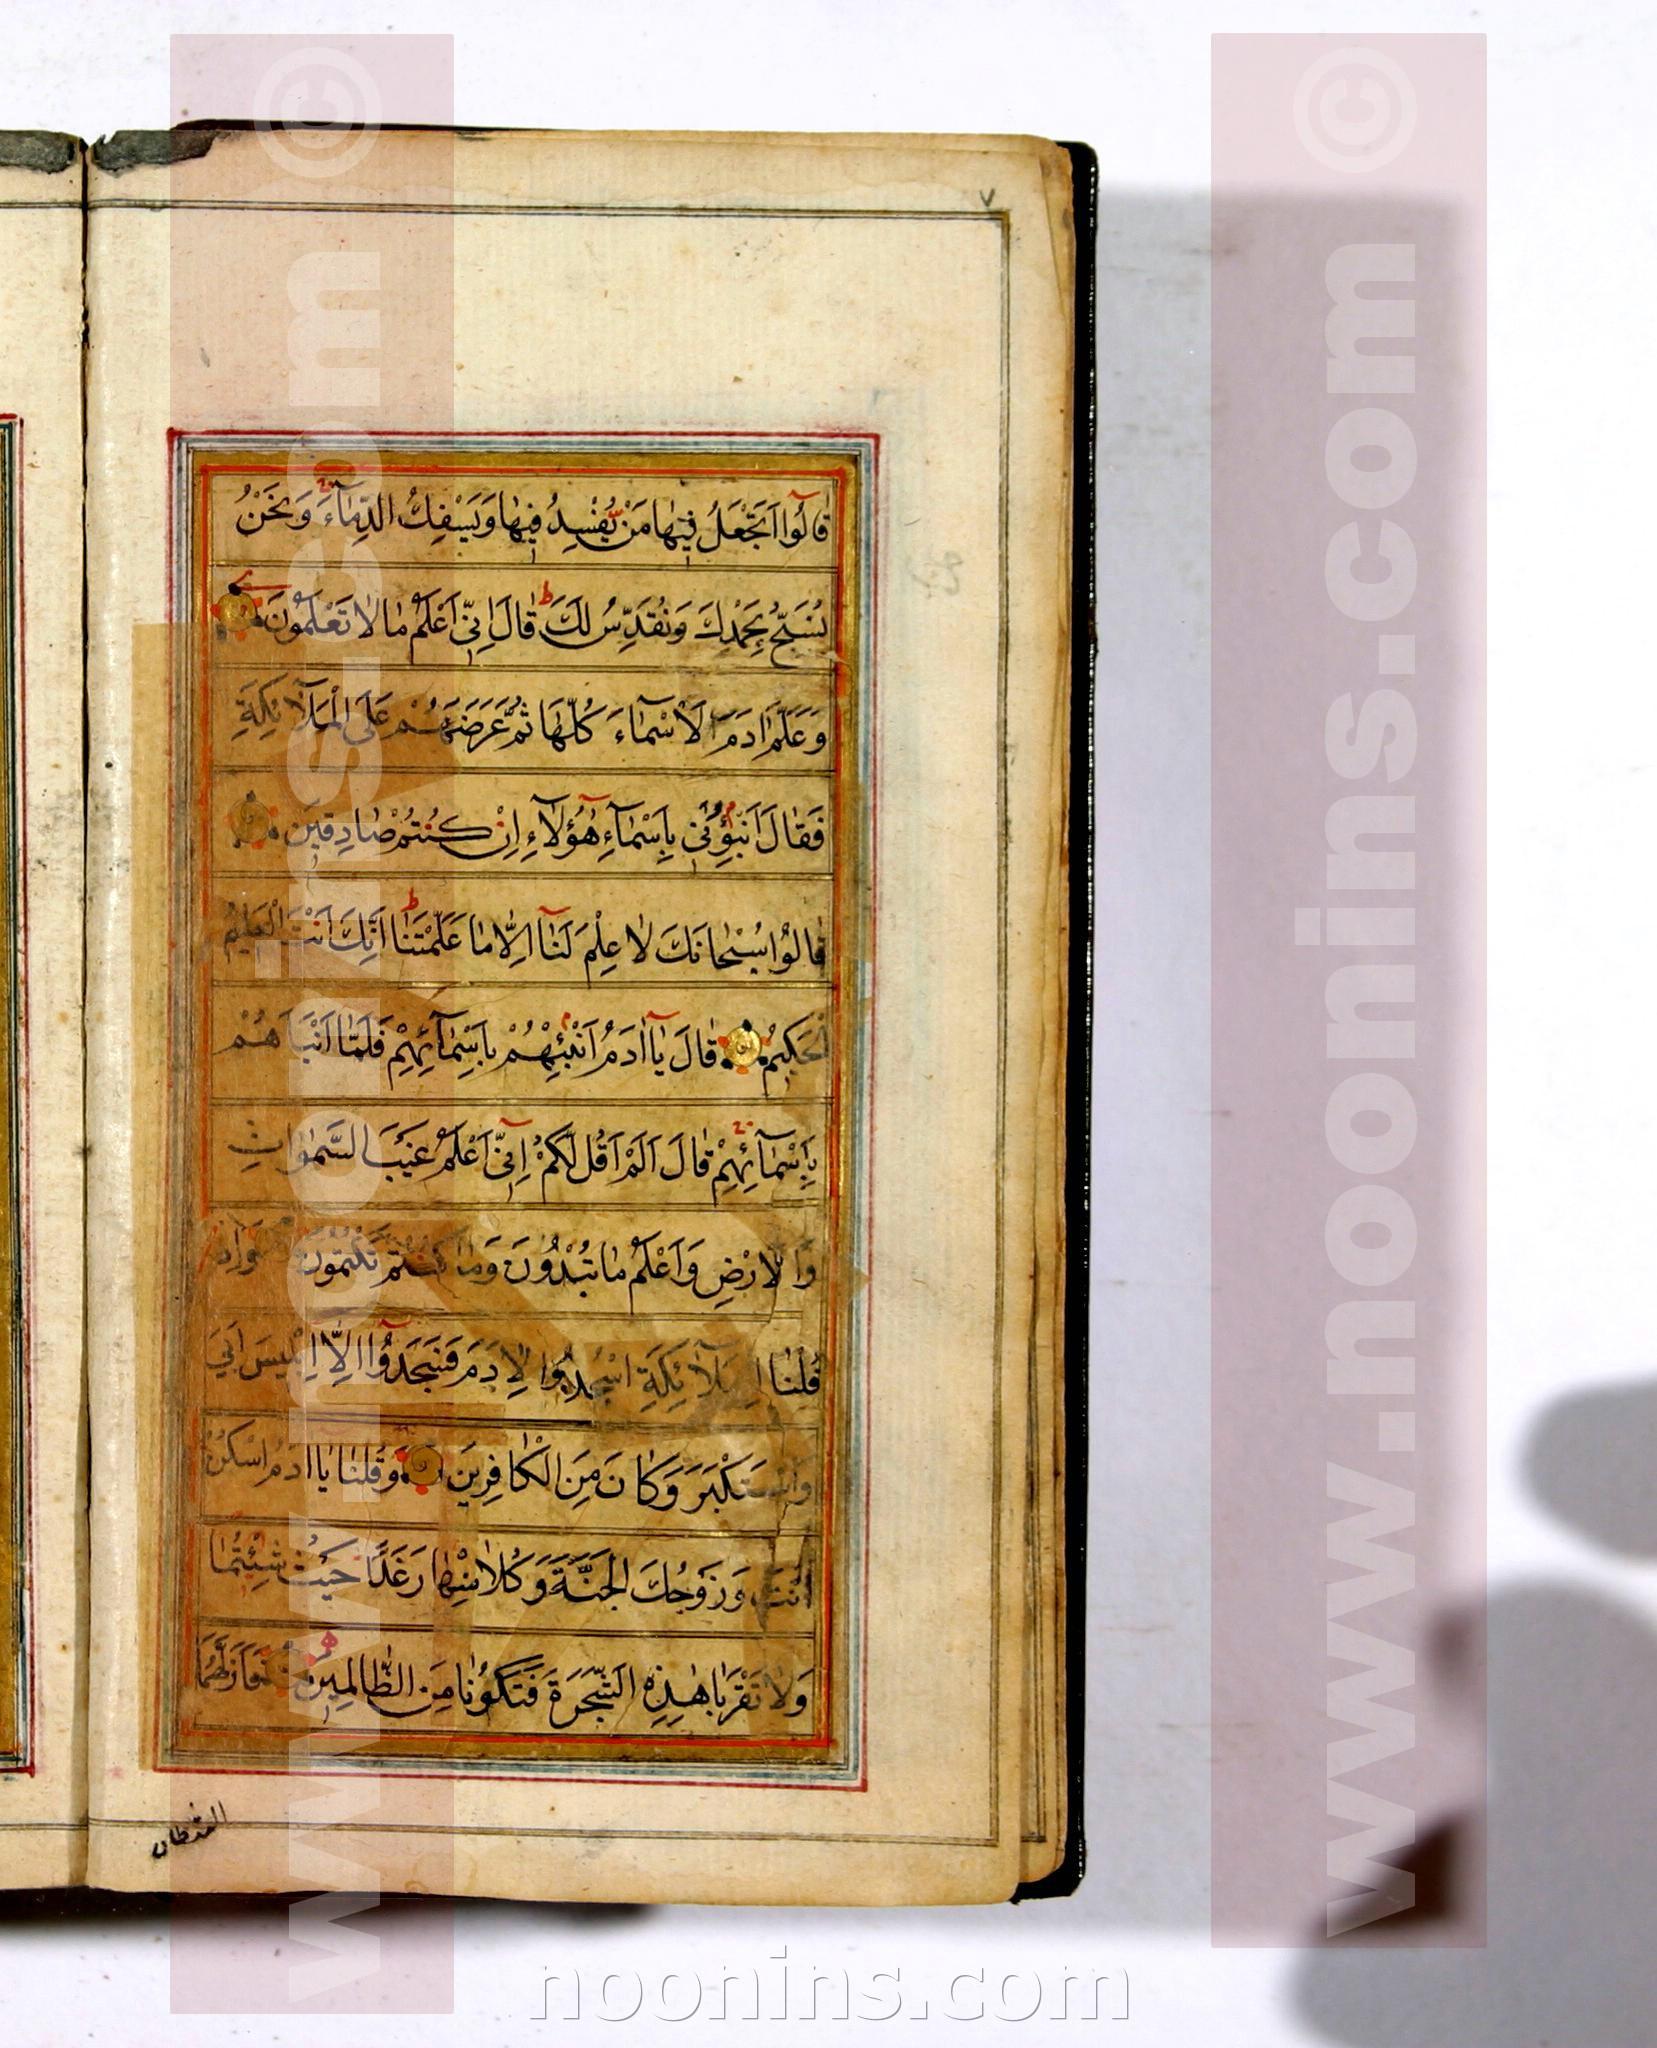 ٧
قٰالُوا اَتَجْعَلُ فِيهٰا مَنْ يُفْسِدُ فِيهٰا وَيَسْفِكُ الدِّمٰآءَ وَنَحْنُ
نُسَبِّحُ بِحَمْدِكَ وَنُقَدِّسُ لَكَ قٰالَ اِنّى اَعْلَمُ مٰا لٰا تَعْلَمُونَ
وَعَلَّمَ اٰدَمَ الْاَسْمٰآءَ كُلَّهٰا ثُمَّ عَرَضَهُمْ عَلَى الْمَلٰآئِكَةِ
فَقٰالَ اَنْبِؤُنى بِاَسْمٰآءِ هٰؤُلٰآءِ اِنْ كُنْتُمْ صٰادِقينَ
قٰالُوا سُبْحٰانَكَ لٰا عِلْمَ لَنٰآ اِلّٰا مٰا عَلَّمْتَنٰا اِنَّكَ اَنْتَ الْعَليمُ
الْحَكيمُ قٰالَ يٰآ اٰدَمُ اَنْبِئْهُمْ بِاَسْمٰآئِهِمْ فَلَمّٰا اَنْبَاَهُمْ
بِاَسْمٰآئِهِمْ قٰالَ اَلَمْ اَقُلْ لَكُمْ اِنّى اَعْلَمُ غَيْبَ السَّمٰوٰاتِ
وَالْاَرْضِ وَاَعْلَمُ مٰا تُبْدُونَ وَمٰا كُنْتُمْ تَكْتُمُونَ وَاِذْ
قُلْنٰا لِلْمَلٰآئِكَةِ اسْجُدُوا لِاٰدَمَ فَسَجَدُوا اِلّٰا اِبْليسَ اَبىٰ
وَاسْتَكْبَرَ وَكٰانَ مِنَ الْكٰافِرينَ وَقُلْنٰا يٰا اٰدَمُ اسْكُنْ
اَنْتَ وَزَوْجُكَ الْجَنَّةَ وَكُلٰا مِنْهٰا رَغَدًا حَيْثُ شِئْتُمٰا
وَلٰا تَقْرَبٰا هٰذِهِ الشَّجَرَةَ فَتَكُونٰا مِنَ الظّٰالِمينَ فَاَزَلَّهُمَا
الشيطان
www.noonins.com ©
www.noonins.com ©
noonins.com